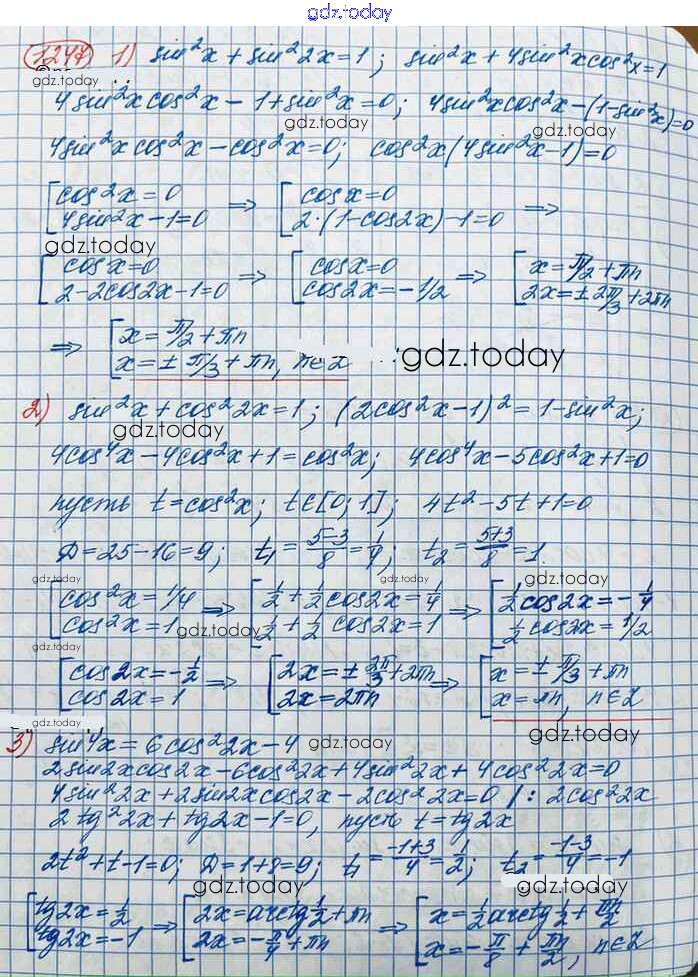 gdz.today
1247 1) sin²x + sin²2x = 1; sin²x + 4sin²xcos²x = 1
gdz.today
4sin²xcos²x - 1 + sin²x = 0; 4sin²xcos²x - (1 - sin²x) = 0
gdz.today gdz.today
4sin²xcos²x - cos²x = 0; cos²x(4sin²x - 1) = 0
[cos²x = 0 ⇒ [cosx = 0 ⇒
4sin²x - 1 = 0 2·(1 - cos2x) - 1 = 0
gdz.today
[cosx = 0 ⇒ [cosx = 0 ⇒ [x = π/2 + πn
2 - 2cos2x - 1 = 0 cos2x = -1/2 2x = ± 2π/3 + 2πn
⇒ [x = π/2 + πn
x = ± π/3 + πn, n∈Z
gdz.today
2) sin²x + cos²2x = 1; (2cos²x - 1)² = 1 - sin²x;
gdz.today
4cos⁴x - 4cos²x + 1 = cos²x; 4cos⁴x - 5cos²x + 1 = 0
пусть t = cos²x; t∈[0; 1]; 4t² - 5t + 1 = 0
D = 25 - 16 = 9; t₁ = (5-3)/8 = 1/4; t₂ = (5+3)/8 = 1.
gdz.today gdz.today gdz.today
[cos²x = 1/4 ⇒ [1/2 + 1/2 cos2x = 1/4 ⇒ [1/2 cos2x = -1/4
cos²x = 1 1/2 + 1/2 cos2x = 1 1/2 cos2x = 1/2
gdz.today gdz.today
[cos2x = -1/2 ⇒ [2x = ± 2π/3 + 2πn ⇒ [x = ± π/3 + πn
cos2x = 1 2x = 2πn x = πn, n∈Z
gdz.today
3) sin4x = 6cos²2x - 4
gdz.today gdz.today
2sin2xcos2x - 6cos²2x + 4sin²2x + 4cos²2x = 0
4sin²2x + 2sin2xcos2x - 2cos²2x = 0 /: 2cos²2x
2tg²2x + tg2x - 1 = 0, пусть t = tg2x
2t² + t - 1 = 0; D = 1 + 8 = 9; t₁ = (-1+3)/4 = 1/2; t₂ = (-1-3)/4 = -1
gdz.today gdz.today
[tg2x = 1/2 ⇒ [2x = arctg 1/2 + πn ⇒ [x = 1/2 arctg 1/2 + πn/2
tg2x = -1 2x = -π/4 + πn x = -π/8 + πn/2, n∈Z
gdz.today gdz.today